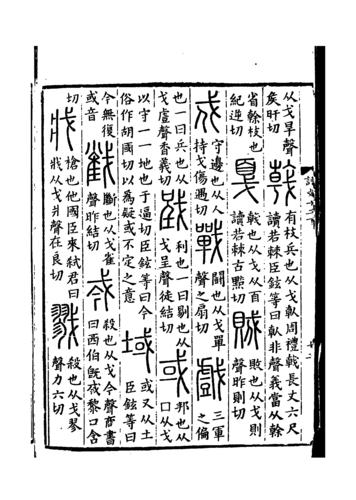 从戈旱聲
矦旰切
戟
有枝兵也从戈倝周禮戟長丈六尺
讀若棘臣鉉等曰倝非聲義當从榦
省榦枝也
紀逆切
戛
戟也从戈从百
讀若棘古黠切
賊
敗也从戈則
聲昨則切
戍
守邊也从人
持戈傷遇切
戰
鬭也从戈單
聲之扇切
戲
三軍
之偏
也一曰兵也从
戈䖒聲香義切
戜
利也一曰剔也从
戈呈聲徒結切
或
邦也从
囗从戈
以守一一地也于逼切臣鉉等曰今
俗作胡國切以爲疑或不定之意
域
或又从土
臣鉉等曰
今無復
或音
𢧵
斷也从戈雀
聲昨結切
𢦟
殺也从戈今聲商書
曰西伯旣𢦟黎口含
切
戕
槍也他國臣來弑君曰
戕从戈爿聲在良切
戮
殺也从戈翏
聲力六切